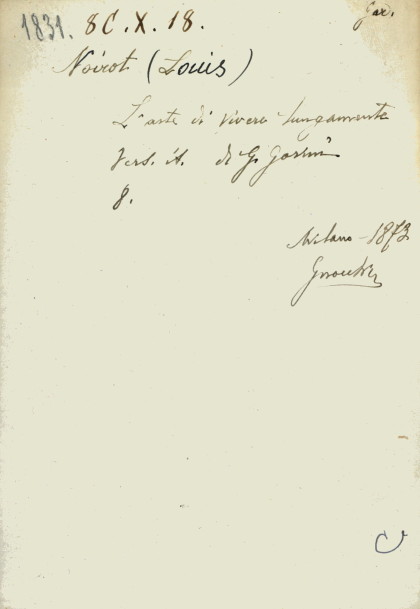 1831. 8C. X. 18.
Gar.
Noirot (Louis)
L'arte di vivere lungamente
Vers. it. di G. Gorini
8.
Milano - 1873